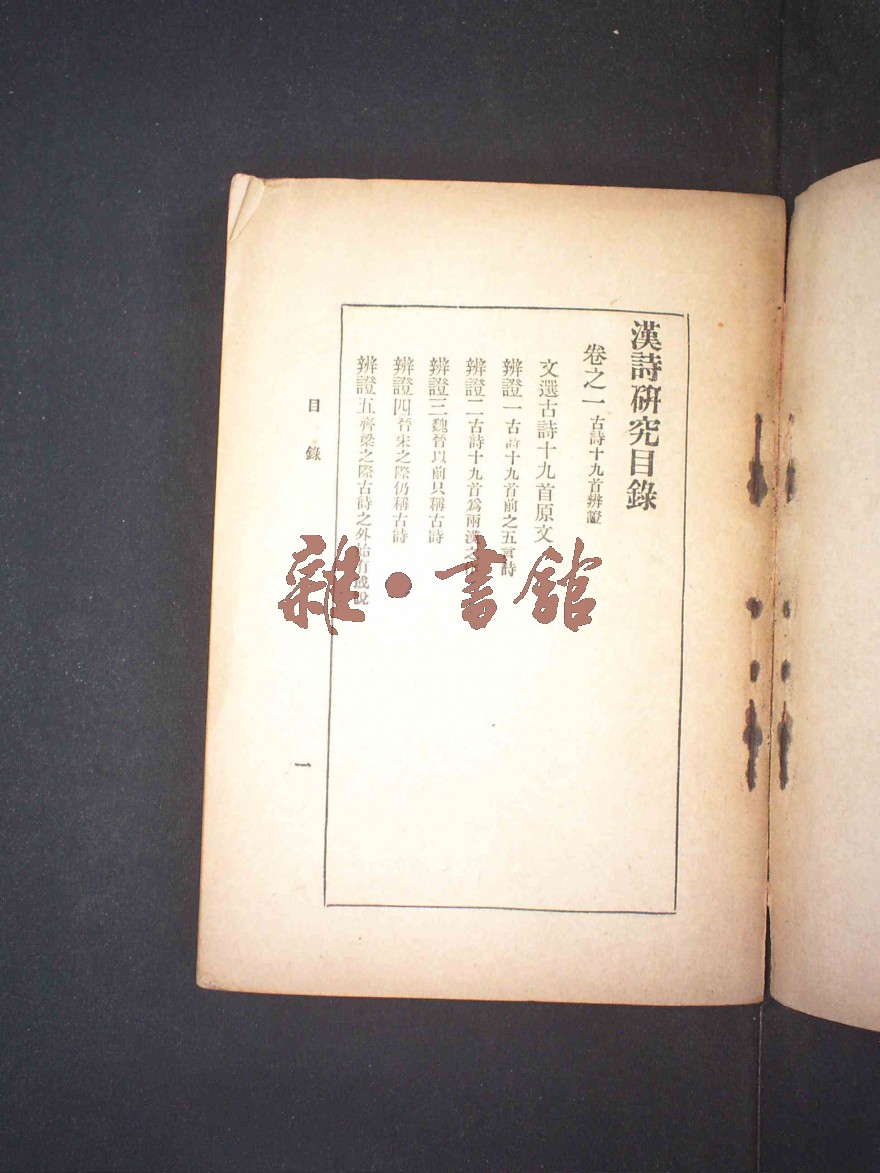 漢詩研究目錄
卷之一 古詩十九首辨證
文選古詩十九首原文
辨證一 古詩十九首前之五言詩
辨證二 古詩十九首爲兩漢之
辨證三 魏晉以前只稱古詩
辨證四 晉宋之際仍稱古詩
辨證五 齊梁之際古詩之外始有說
目錄
一
雜·書館